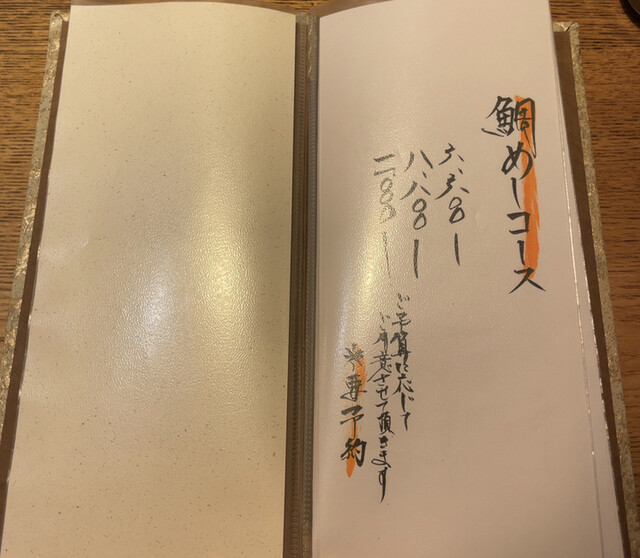 鯛めしコース
六、六〇〇ー
八、八〇〇ー
一一〇〇〇ー
ご予算に応じて
ご用意させて頂きます
※要予約